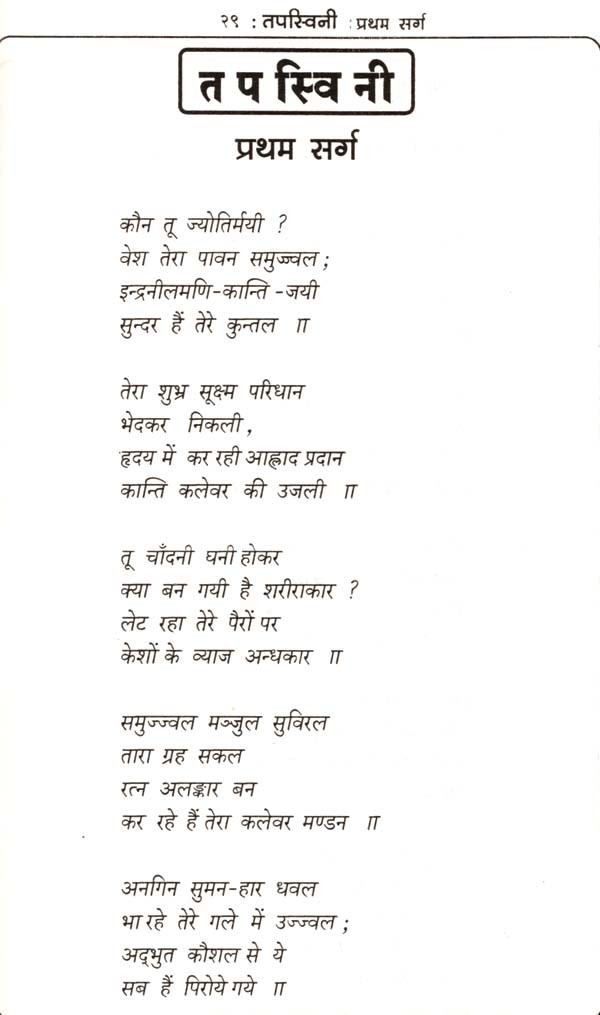 २९ : तपस्विनी : प्रथम सर्ग
त प स्वि नी
प्रथम सर्ग
कौन तू ज्योतिर्मयी ?
वेश तेरा पावन समुज्ज्वल ;
इन्द्रनीलमणि-कान्ति -जयी
सुन्दर हैं तेरे कुन्तल ॥
तेरा शुभ्र सूक्ष्म परिधान
भेदकर निकली ,
हृदय में कर रही आह्लाद प्रदान
कान्ति कलेवर की उजली ॥
तू चाँदनी घनी होकर
क्या बन गयी है शरीराकार ?
लेट रहा तेरे पैरों पर
केशों के व्याज अन्धकार ॥
समुज्ज्वल मञ्जुल सुविरल
तारा ग्रह सकल
रत्न अलङ्कार बन
कर रहे हैं तेरा कलेवर मण्डन ॥
अनगिन सुमन-हार धवल
भा रहे तेरे गले में उज्ज्वल ;
अद्‌भुत कौशल से ये
सब हैं पिरोये गये ॥